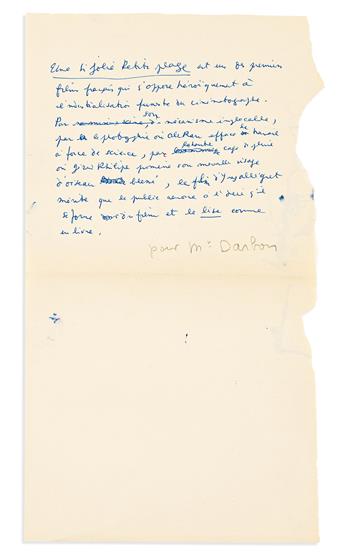 Une si jolie Petite plage est un des premiers
films français qui s'oppose héroïquement à
l'industrialisation funeste du cinématographe.
Par son mécanisme
par la photographie où Alekan efface le travail
à force de science, par la longue cape de pluie
où Gérard Philipe promène son nouveau visage
d'oiseau blessé, le film d'Yves Allégret
mérite que le public renonce à l'idée qu'il
se forme du film et le lise comme
un livre.
pour Mr Darbon